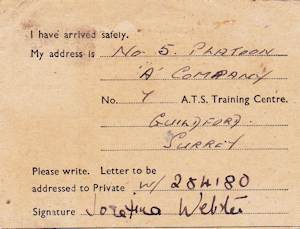 I have arrived safely.
My address is No 5. PLATOON
'A' COMPANY
No. 7 A.T.S. Training Centre.
GUILDFORD.
SURREY
Please write. Letter to be
addressed to Private W/284180
Signature Webster